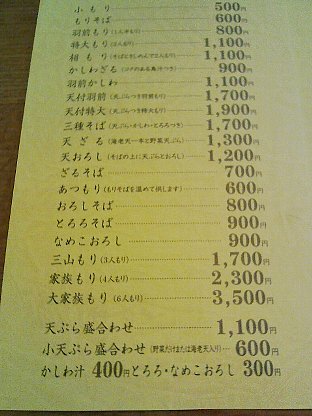 小もり 500円
もりそば 600円
羽前もり(1人半もり) 800円
特大もり(2人もり) 1,100円
相もり(そばとうどんのもり) 1,100円
かしわざる(コクのある鳥汁つき) 900円
羽前かしわ 1,100円
天付羽前(天ぷらつき羽前もり) 1,700円
天付特大(天ぷらつき特大もり) 1,900円
三種そば(天ぷら・かしわ・とろろつき) 1,700円
天ざる(海老天一本と野菜天ぷら) 1,300円
天おろし(そばの上に天ぷらとおろし) 1,200円
ざるそば 700円
あつもり(もりそばを温めて供します) 600円
おろしそば 800円
とろろそば 900円
なめこおろし 900円
三山もり(3人もり) 1,700円
家族もり(4人もり) 2,300円
大家族もり(6人もり) 3,500円
天ぷら盛合わせ 1,100円
小天ぷら盛合わせ(野菜だけまたは海老天入り) 600円
かしわ汁 400円 とろろ・なめこおろし 300円